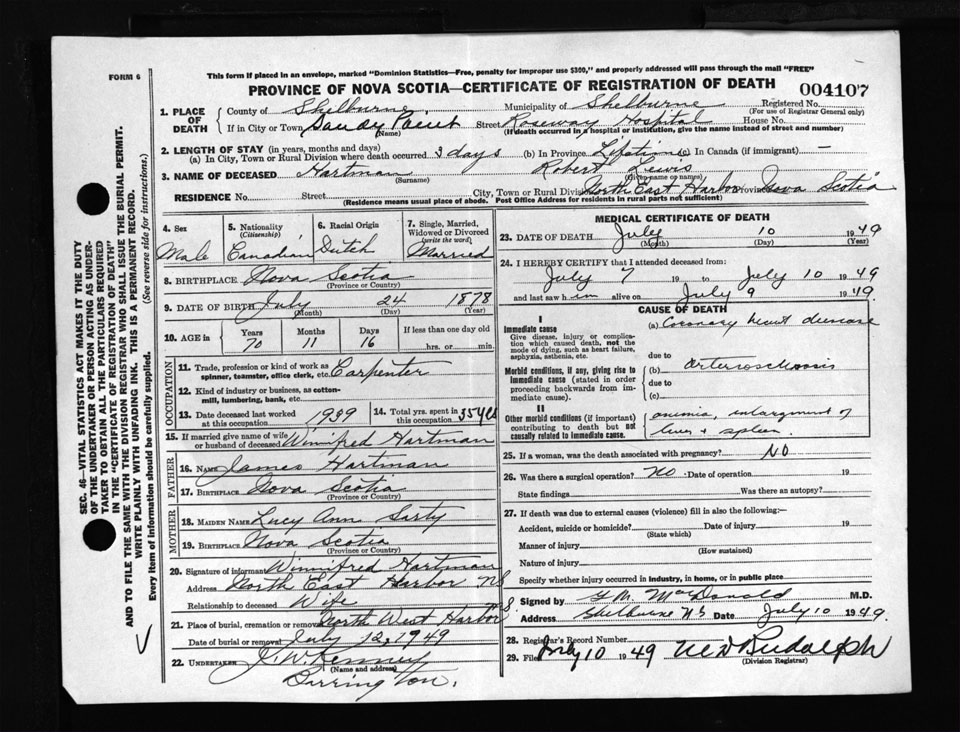 FORM 6
This form if placed in an envelope, marked "Dominion Statistics—Free, penalty for improper use $300," and properly addressed will pass through the mail "FREE"
PROVINCE OF NOVA SCOTIA—CERTIFICATE OF REGISTRATION OF DEATH
004107
1. PLACE OF DEATH
County of Shelburne Municipality of Shelburne Registered No.
(For use of Registrar General only)
If in City or Town Sandy Point Street Roseway Hospital House No.
(Name) (If death occurred in a hospital or institution, give the name instead of street and number)
2. LENGTH OF STAY (in years, months and days)
(a) In City, Town or Rural Division where death occurred 3 days (b) In Province Lifetime (c) In Canada (if immigrant) —
3. NAME OF DECEASED Hartman Robert Lewis
(Surname) (Given name or names)
RESIDENCE No. Street City, Town or Rural Division North East Harbor Province Nova Scotia
(Residence means usual place of abode. Post Office Address for residents in rural parts not sufficient)
4. Sex
Male
5. Nationality (Citizenship)
Canadian
6. Racial Origin
Dutch
7. Single, Married, Widowed or Divorced (write the word)
Married
8. BIRTHPLACE Nova Scotia
(Province or Country)
9. DATE OF BIRTH July 24 1878
(Month) (Day) (Year)
10. AGE in Years Months Days If less than one day old
70 11 16 hrs. or min.
OCCUPATION
11. Trade, profession or kind of work as spinner, teamster, office clerk, etc. Carpenter
12. Kind of industry or business, as cotton-mill, lumbering, bank, etc.
13. Date deceased last worked at this occupation 1939
14. Total yrs. spent in this occupation 35 yrs
15. If married give name of wife or husband of deceased Winnifred Hartman
FATHER
16. NAME James Hartman
17. BIRTHPLACE Nova Scotia
(Province or Country)
MOTHER
18. MAIDEN NAME Lucy Ann Sarty
19. BIRTHPLACE Nova Scotia
(Province or Country)
20. Signature of informant Winnifred Hartman
Address North East Harbor NS
Relationship to deceased Wife
21. Place of burial, cremation or removal North West Harbor N.S.
Date of burial or removal July 12, 1949
22. UNDERTAKER J. W. Kenney
(Name and address)
Barrington.
MEDICAL CERTIFICATE OF DEATH
23. DATE OF DEATH July 10 1949
(Month) (Day) (Year)
24. I HEREBY CERTIFY that I attended deceased from:
July 7 19 to July 10 1949
and last saw him alive on July 9 1949.
CAUSE OF DEATH
I
Immediate cause
Give disease, injury or complication which caused death, not the mode of dying, such as heart failure, asphyxia, asthenia, etc.
(a) Coronary heart disease
due to
Morbid conditions, if any, giving rise to immediate cause (stated in order proceeding backwards from immediate cause).
(b) arteriosclerosis
due to
(c)
II
Other morbid conditions (if important) contributing to death but not causally related to immediate cause.
anemia, enlargment of
liver & spleen
25. If a woman, was the death associated with pregnancy? NO
26. Was there a surgical operation? No Date of operation 19
State findings Was there an autopsy?
27. If death was due to external causes (violence) fill in also the following:—
Accident, suicide or homicide? Date of injury 19
(State which)
Manner of injury
(How sustained)
Nature of injury
Specify whether injury occurred in industry, in home, or in public place
Signed by MacDonald M.D.
Address Shelburne N.S Date July 10 1949
28. Registrar's Record Number
29. Filed July 10 1949 Rudolph
(Division Registrar)
SEC. 46—VITAL STATISTICS ACT MAKES IT THE DUTY
OF THE UNDERTAKER OR PERSON ACTING AS UNDER-
TAKER TO OBTAIN ALL THE PARTICULARS REQUIRED
IN THE "CERTIFICATE OF REGISTRATION OF DEATH"
AND TO FILE THE SAME WITH THE DIVISION REGISTRAR WHO SHALL ISSUE THE BURIAL PERMIT.
WRITE PLAINLY WITH UNFADING INK. THIS IS A PERMANENT RECORD.
Every item of information should be carefully supplied. (See reverse side for instructions.)